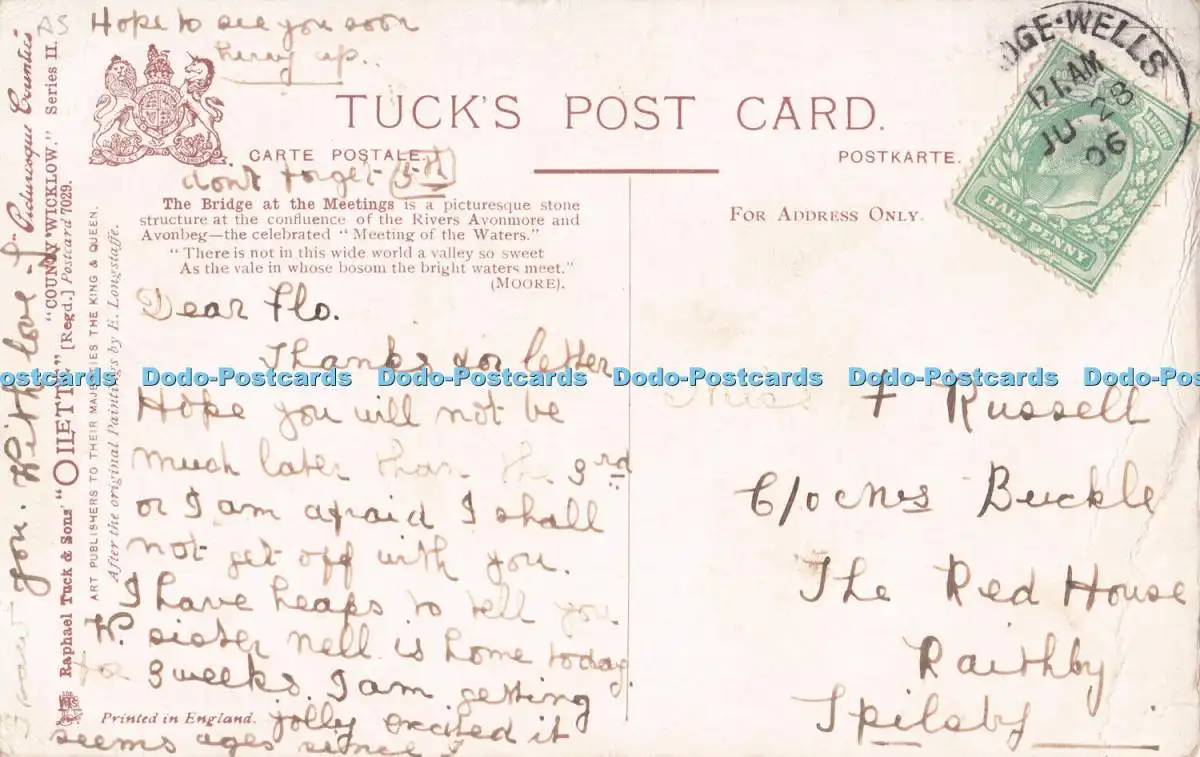 Hope to see you soon
hurry up..
TUCK'S POST CARD.
CARTE POSTALE.
POSTKARTE.
don't forget 3rd
The Bridge at the Meetings is a picturesque stone
structure at the confluence of the Rivers Avonmore and
Avonbeg—the celebrated "Meeting of the Waters."
"There is not in this wide world a valley so sweet
As the vale in whose bosom the bright waters meet."
(MOORE).
FOR ADDRESS ONLY.
Dear Flo.
Thanks for letter
Hope you will not be
much later than the 3rd
or I am afraid I shall
not get off with you.
I have heaps to tell you
W. sister Nell is home today
for 3 weeks. I am getting
jolly excited it
seems ages since I
saw you. With love
Miss F Russell
C/o Mrs Buckle
The Red House
Raithby
Spilsby
Picturesque Counties
"COUNTY WICKLOW." Series II.
Raphael Tuck & Sons' "OILETTE" [Regd.] Postcard 7029.
ART PUBLISHERS TO THEIR MAJESTIES THE KING & QUEEN.
After the original Paintings by E. Longstaffe.
Printed in England.
DGE-WELLS
AM
JU
06
HALF PENNY
Dodo-Postcards Dodo-Postcards Dodo-Postcards Dodo-Postcards Dodo-Postcards